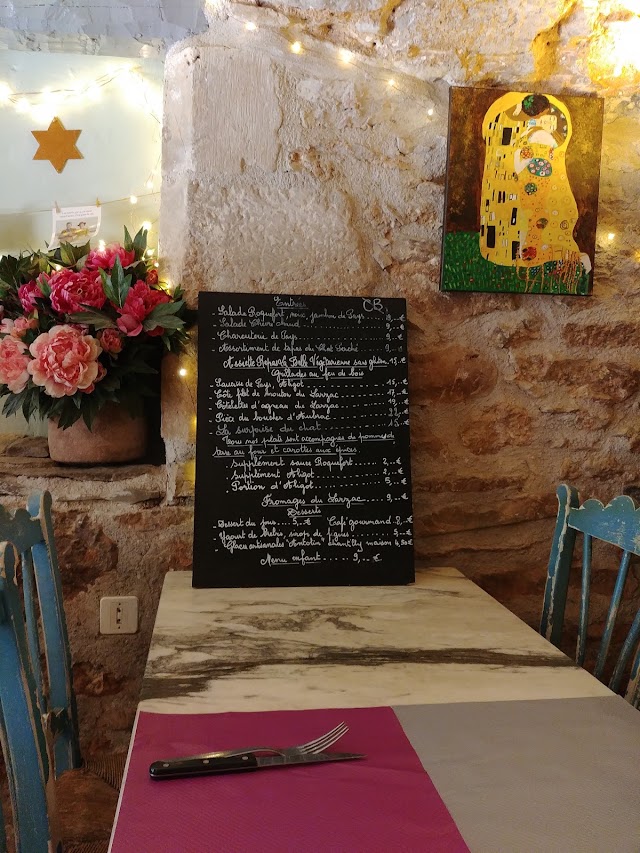 Entrées CB
- Salade Roquefort, noix, jambon de Pays ... 9,..€
- Salade Chèvre chaud ... 9,..€
- Charcuterie de Pays ... 9,..€
- Assortiment de tapas du Chat Perché ... 9,..€
Assiette Repas Belle Végétarienne sans gluten 15,..€
Grillades au feu de bois
- Saucisse de Pays, Aligot ... 15,..€
- Côte filet de mouton du Larzac ... 17,..€
- Côtelettes d'agneau du Larzac ...
- Pièce du boucher d'Aubrac ... 22,..€
- La surprise du chat ... 15,..€
Tous nos plats sont accompagnés de pommes de
terre au four et carottes aux épices.
- Supplément sauce Roquefort ... 2,..€
- Supplément Aligot ... 2,..€
- Portion d'Aligot ... 5,..€
Fromages du Larzac ... 9,..€
Desserts
- Dessert du jour .... 5,..€ Café gourmand . 8,..€
- Yaourt de brebis, sirops de figues ... 5,..€
- Glaces artisanales chantilly maison 4,50€
Menu enfant ..... 9,..€